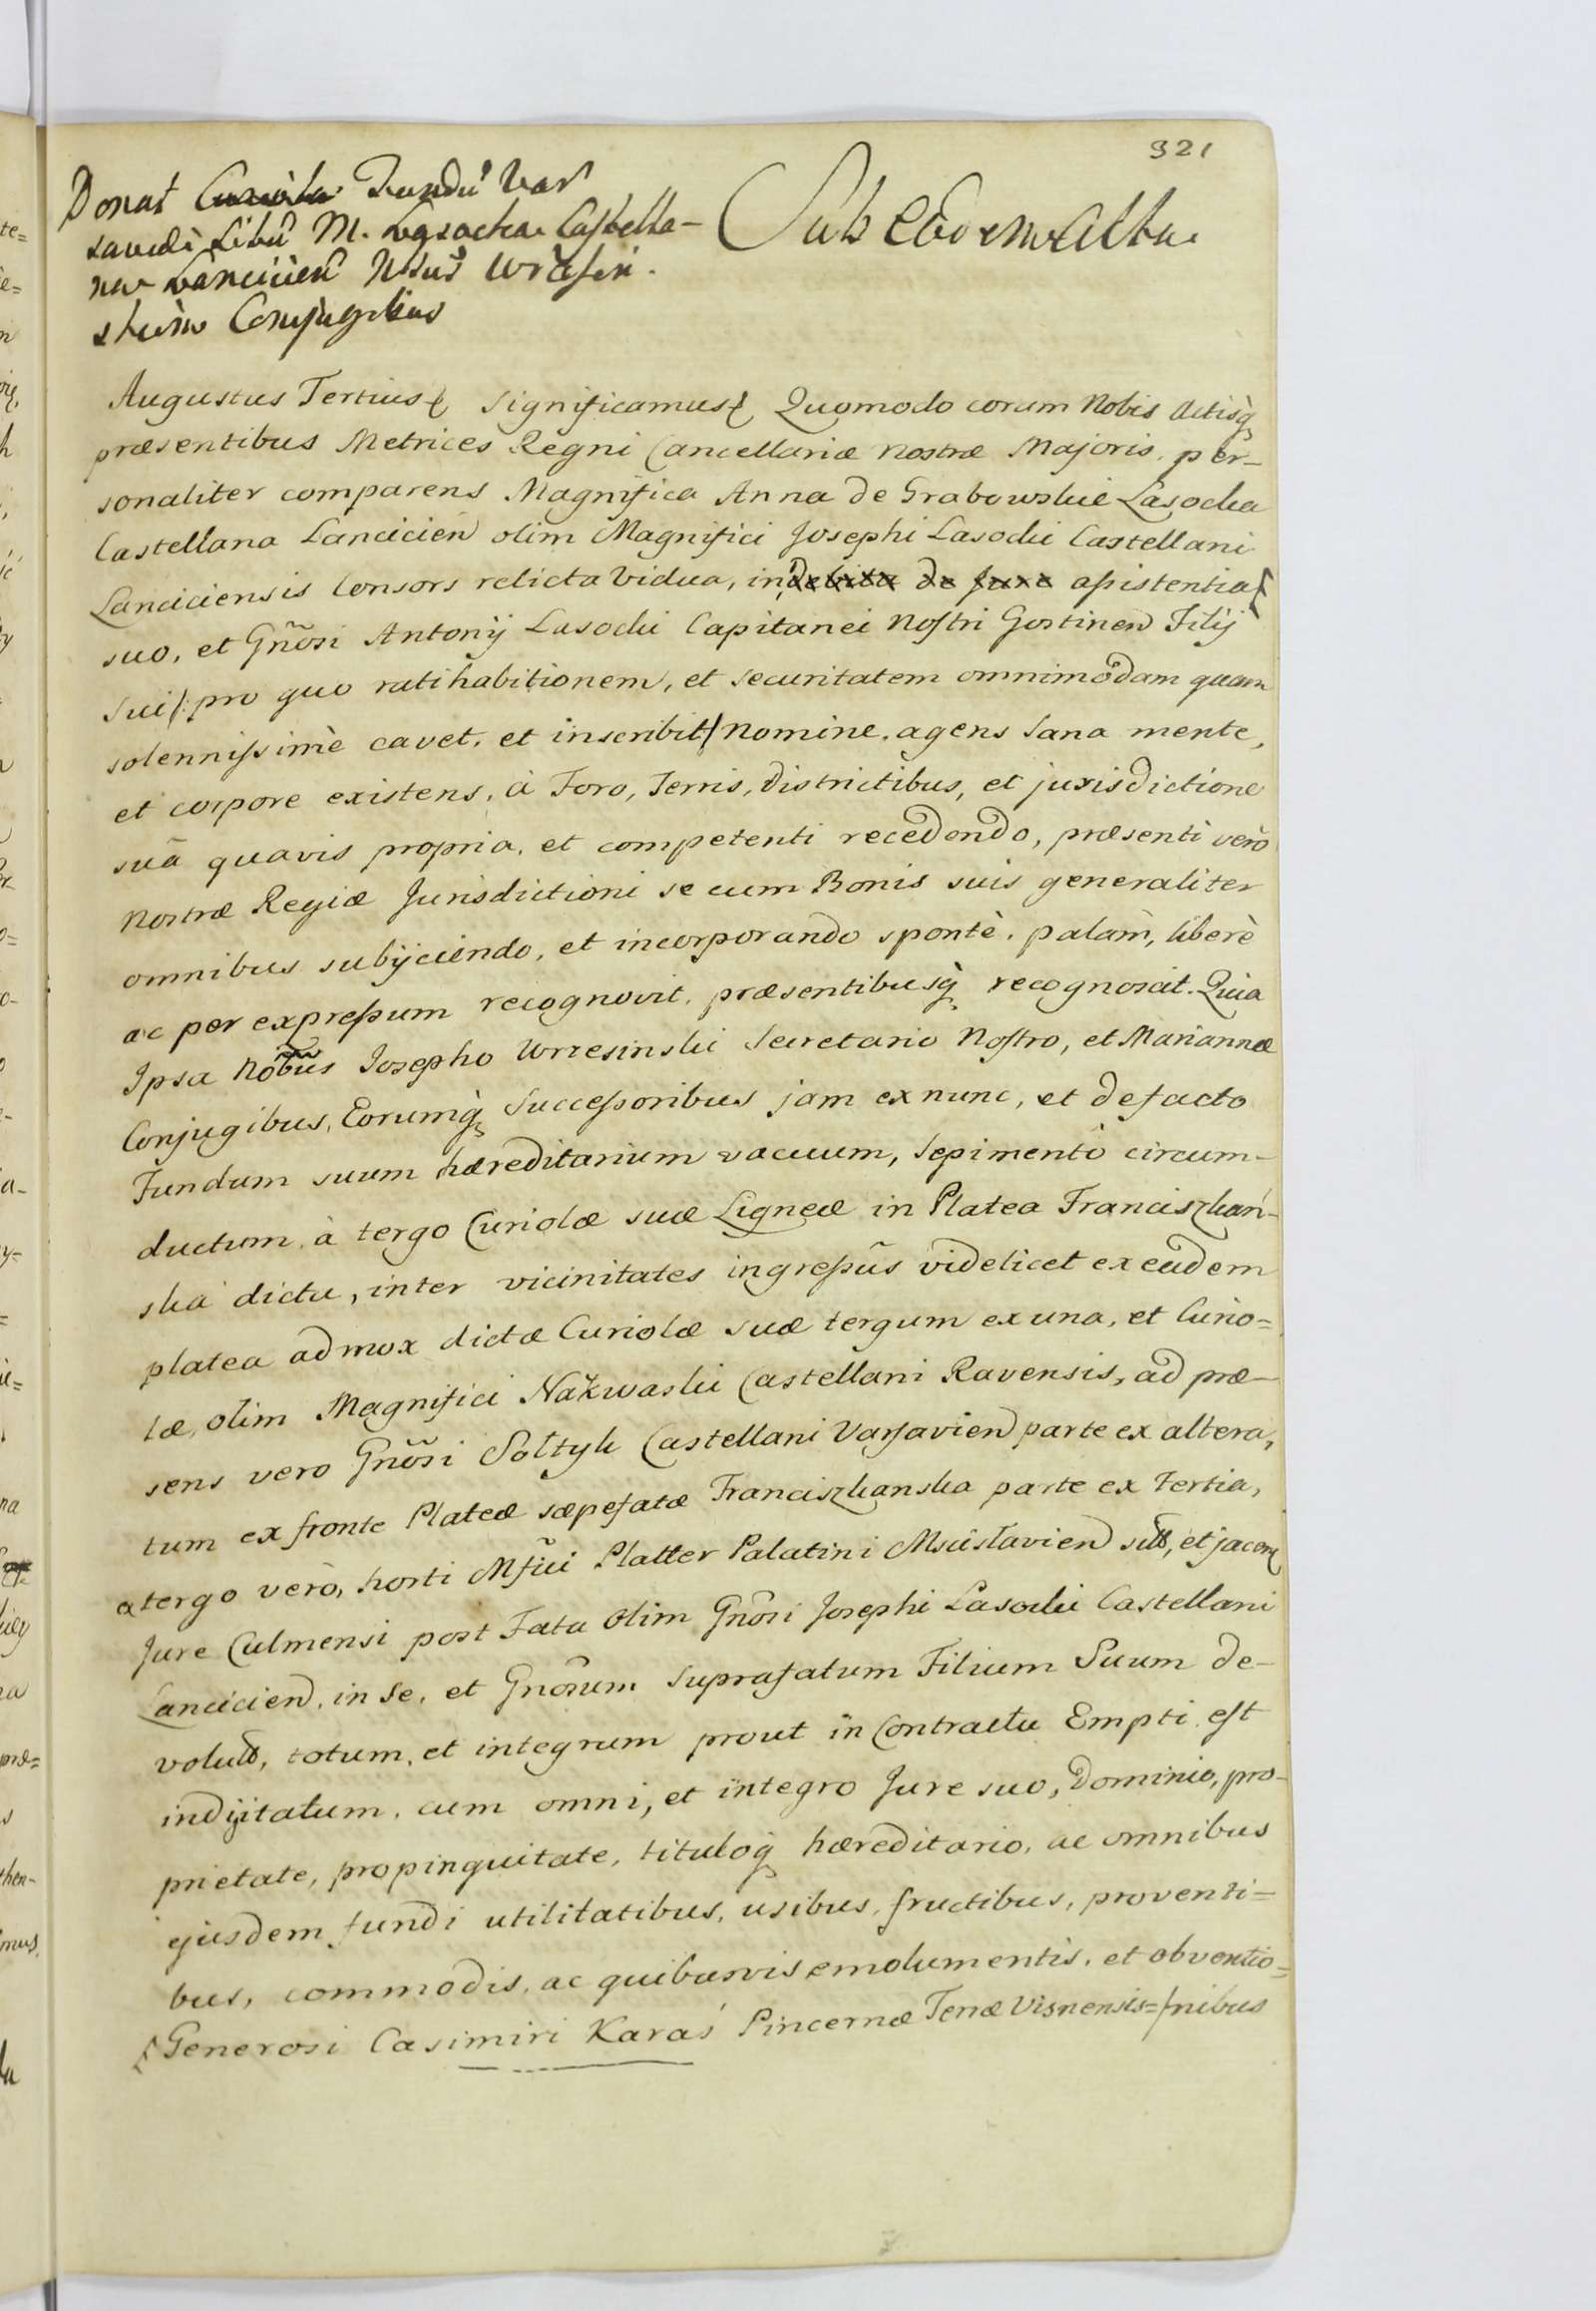 321
Donat Curiola Fundi Var
saviae Sibi M. Lasocka Castella-
na Lancicien Nobus Wrzesin
skim Conjugibus
Sub Eodem Actu
Augustus Tertius Significamus Quomodo coram Nobis Actisq
præsentibus Metrices Regni Cancellariæ Nostræ Majoris, per-
sonaliter comparens Magnifica Anna de Grabowskie Lasocka
Castellana Lancicien olim Magnifici Josephi Lasocki Castellani
Lanciciensis Consors relicta Vidua, in debita de Jure assistentia
suo, et Gnõsi Antonij Lasocki Capitanei Nostri Gostinen Filij
Sui /: pro quo ratihabitionem, et securitatem omnimodam quam
solennissimè cavet, et inscribit/ Nomine, agens sana mente,
et corpore existens, à Foro, Terris, Districtibus, et jurisdictione
suâ quavis propria, et competenti recedendo, præsenti verò
Nostræ Regiæ Jurisdictioni se cum Bonis suis generaliter
omnibus subijciendo, et incorporando spontè, palàm, liberè
ac per expressum recognovit, præsentibusq recognoscit. Quia
Ipsa Nobũs Josepho Wrzesinski Secretario Nostro, et Mariannæ
Conjugibus, Eorumq Successoribus jam ex nunc, et de facto
Fundum suum hæreditarium vacuum, Sepimento circum-
ductum, à tergo Curiolæ suæ Ligneæ in Platea Franciszkań-
ska dicta, inter vicinitates ingressũs videlicet ex eadem
platea ad mox dictæ Curiolæ suæ tergum ex una, et Curio=
læ, olim Magnifici Nakwaski Castellani Ravensis, ad præ-
sens vero Gnõsi Soltyk Castellani Varsavien parte ex altera,
tum ex fronte Plateæ sæpefatæ Franciszkanska parte ex Tertia,
a tergo verò, horti Mfici Platter Palatini Mscislavien sitt, et jacen
Jure Culmensi post Fata Olim Gnõsi Josephi Lasocki Castellani
Lancicien, in Se, et Gnõsum suprafatum Filium Suum de-
volutt, totum, et integrum prout in Contractu Empti est
indijitatum, cum omni, et integro Jure suo, Dominio, pro-
prietate, propinquitate, tituloq hæreditario, ac omnibus
ejusdem fundi utilitatibus, usibus, fructibus, proventi=
bus, commodis, ac quibusvis emolumentis, et obventio=
Generosi Casimiri Karaś Pincernæ Terræ Visnensis=/nibus